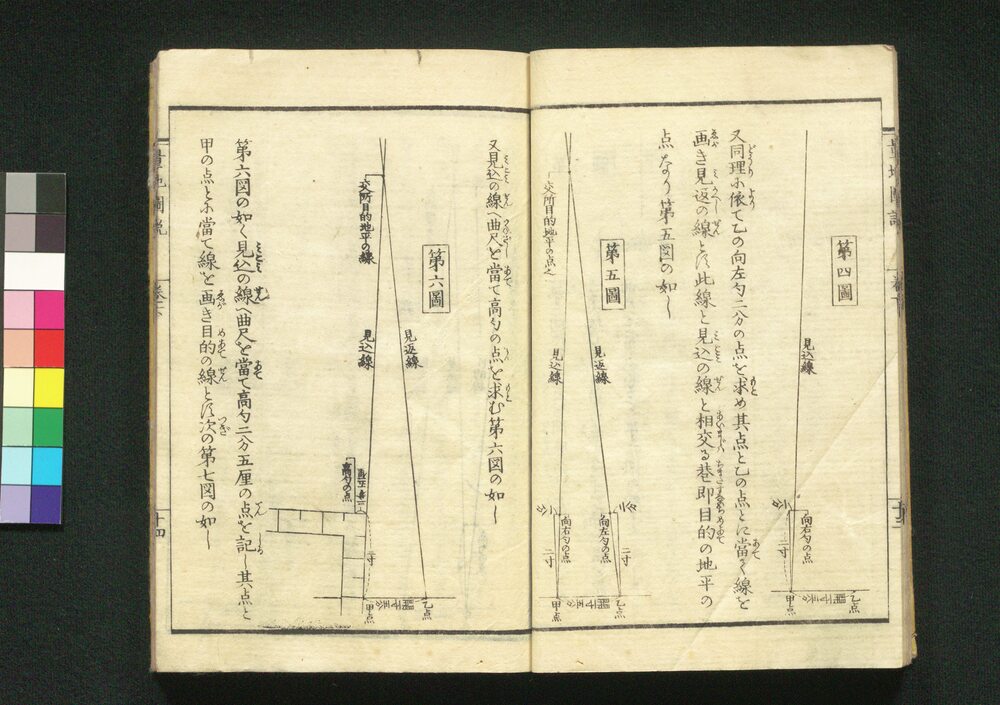 第四圖
見込線
向右勺の点
二寸
甲点
乙点
又同理に依て乙の向左勺二分の点を求め其点と乙の点とに當て線を
画き見返の線とす此線と見込の線と相交る巷即目的の地平の
点なり第五図の如し
第五圖
交所目的地平の点之
見込線
見返線
向右勺の点
二寸
向左勺の点
二寸
甲点
乙点
又見込の線へ曲尺を當て高勺の点を求む第六図の如し
第六圖
交所目的地平の線
見込線
見返線
高勺の点
二寸
甲点
乙点
第六図の如く見込の線へ曲尺を當て高勺二分五厘の点を記し其点と
甲の点とに當て線を画き目的の線とす次の第七図の如し
量地圖説
十四